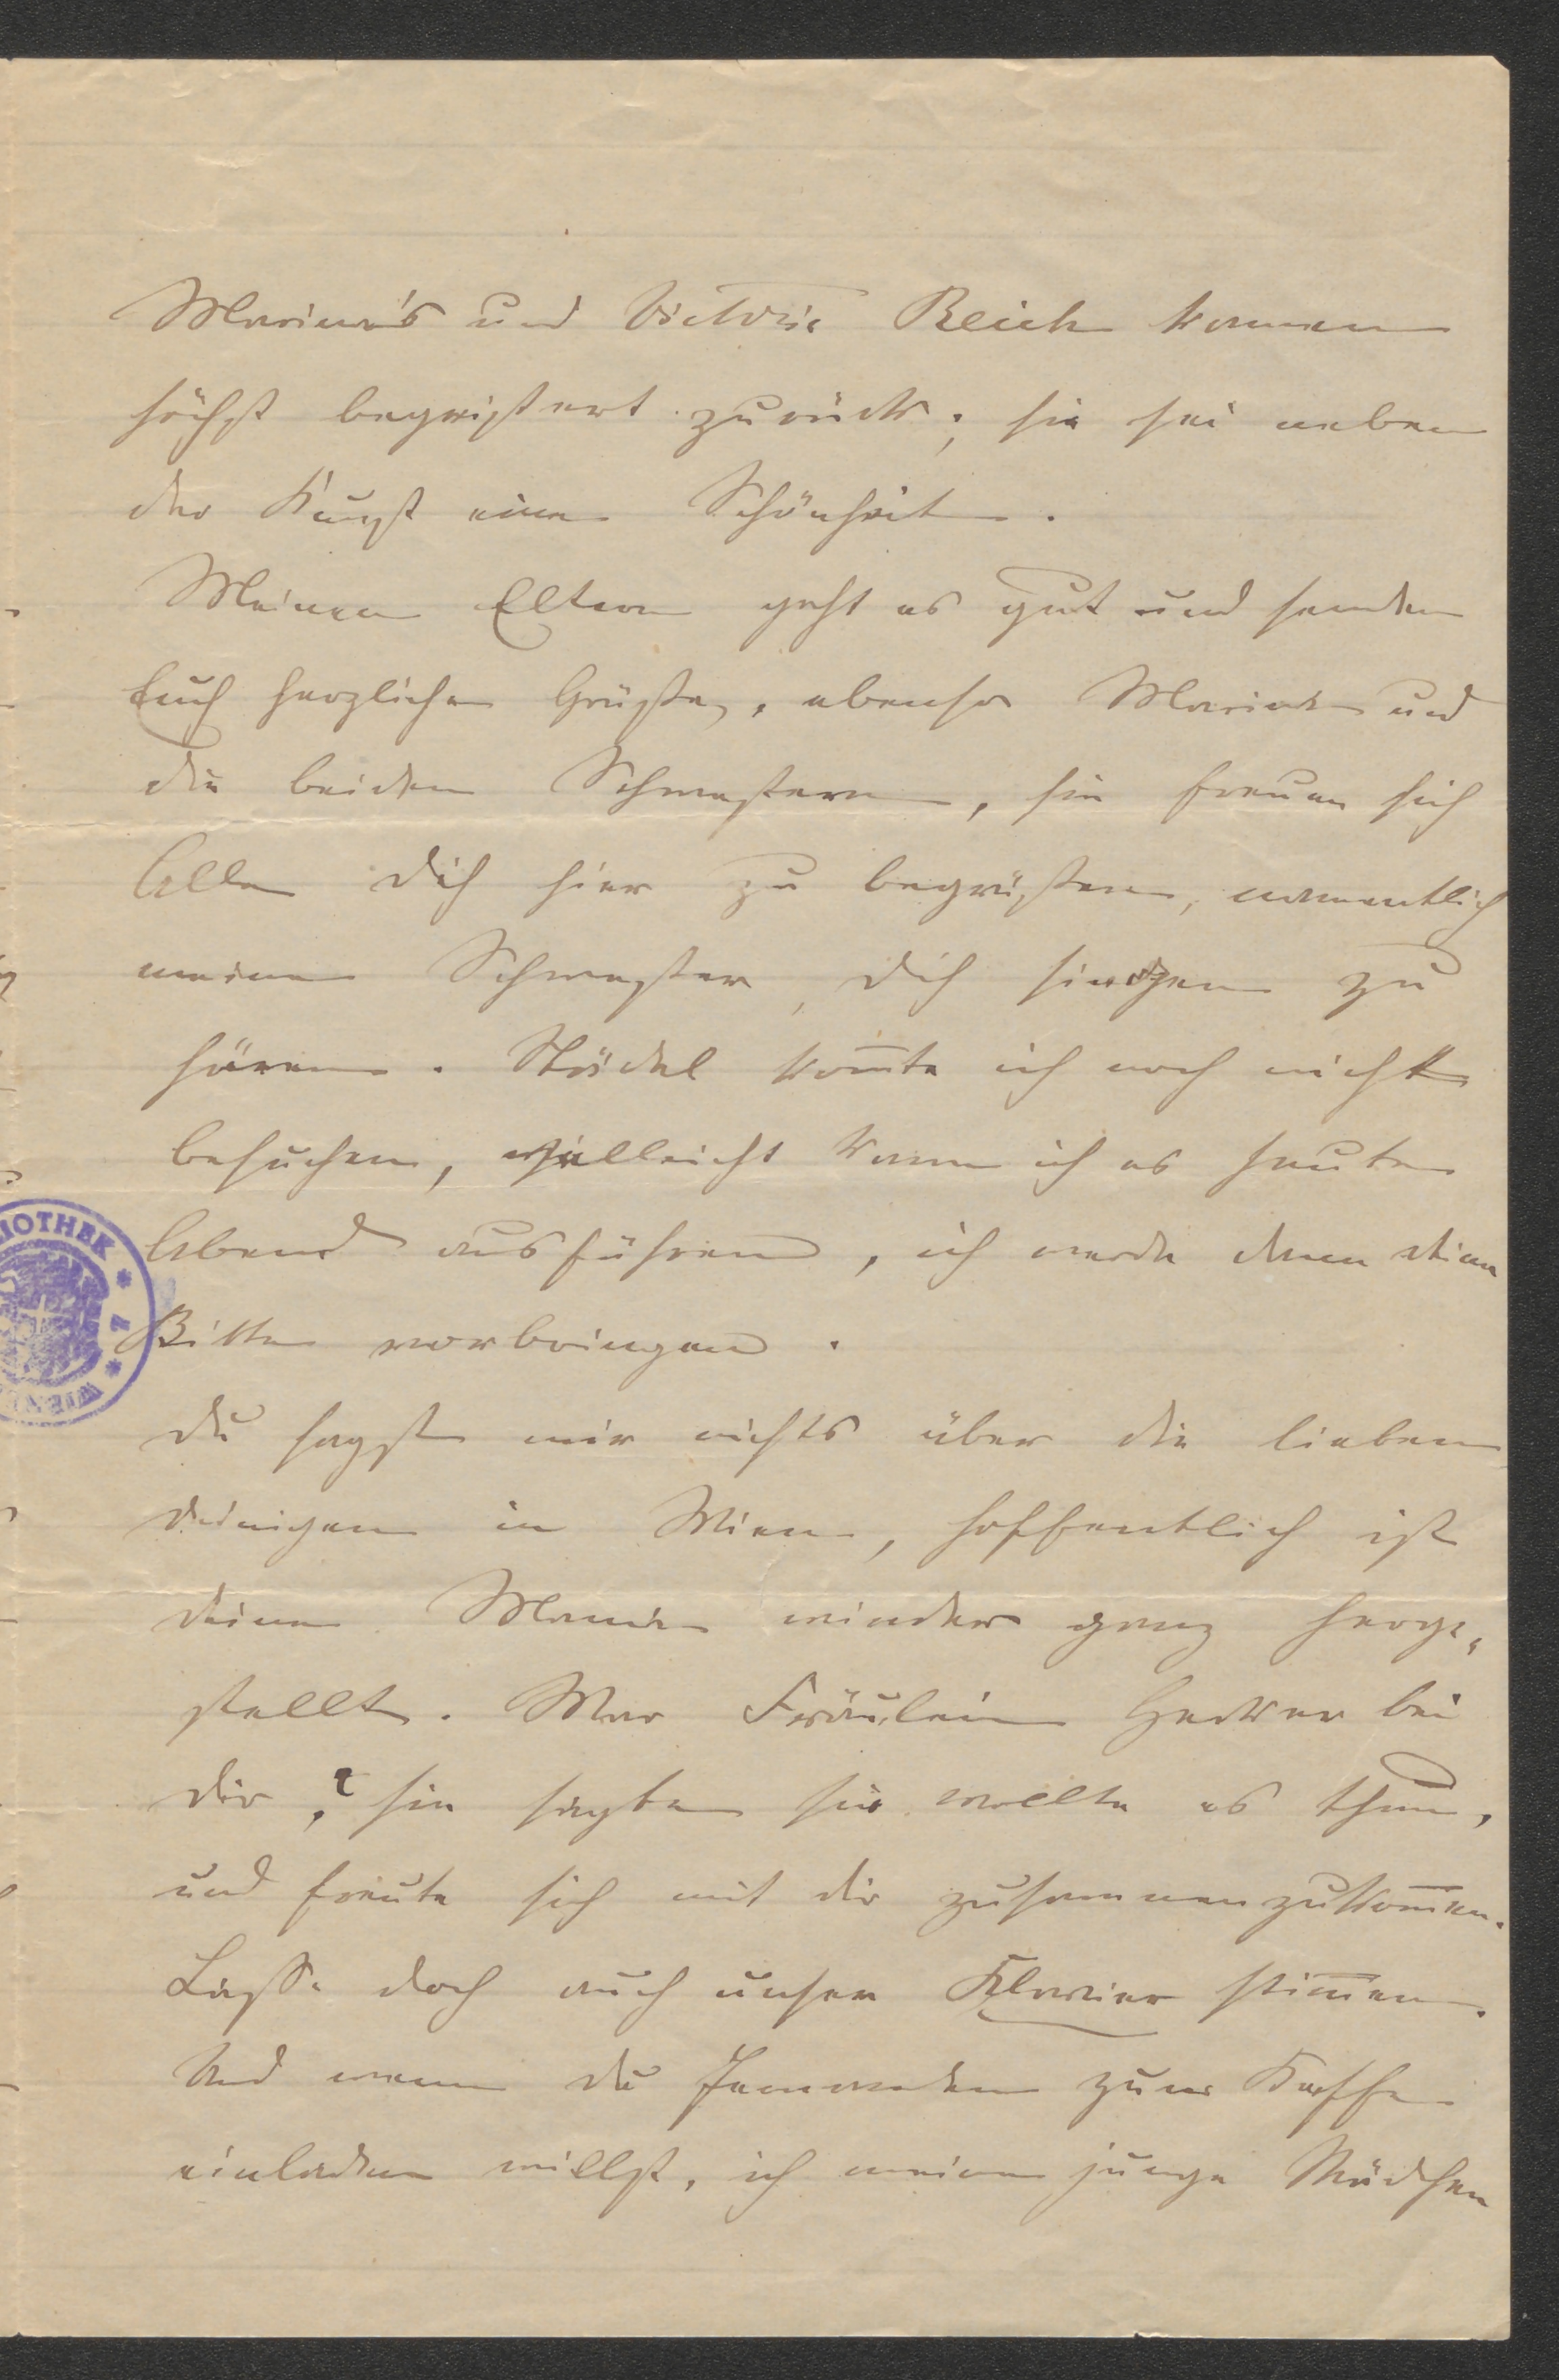 Marina's und Victorie Reich kamen
höchst begeistert zurück; sie sei neben
der Kunst eine Schönheit.
Meinen Eltern geht es gut und senden
Euch herzliche Grüße, ebenso Marina und
die beiden Schwestern, sie freuen sich
Alle dich hier zu begrüßen, namentlich
meine Schwester, dich singen zu
hören. Stöckel konnte ich noch nicht
besuchen, vielleicht kann ich es heute
Abend ausführen, ich werde dann deine
Bitte vorbringen.
du sagst mir nichts über die lieben
deinigen in Wien, hoffentlich ist
deine Mama wieder ganz herge-
stellt. War Fräulein bei
dir? sie sagte sie wollte es thun,
und freute sich mit dir zusammenzukommen.
Lasse doch auch unser Klavier stimmen.
Und wenn du Jemanden zum Kaffe
einladen willst, ich meine junge Mädchen
BLIOTHEK
WIEN